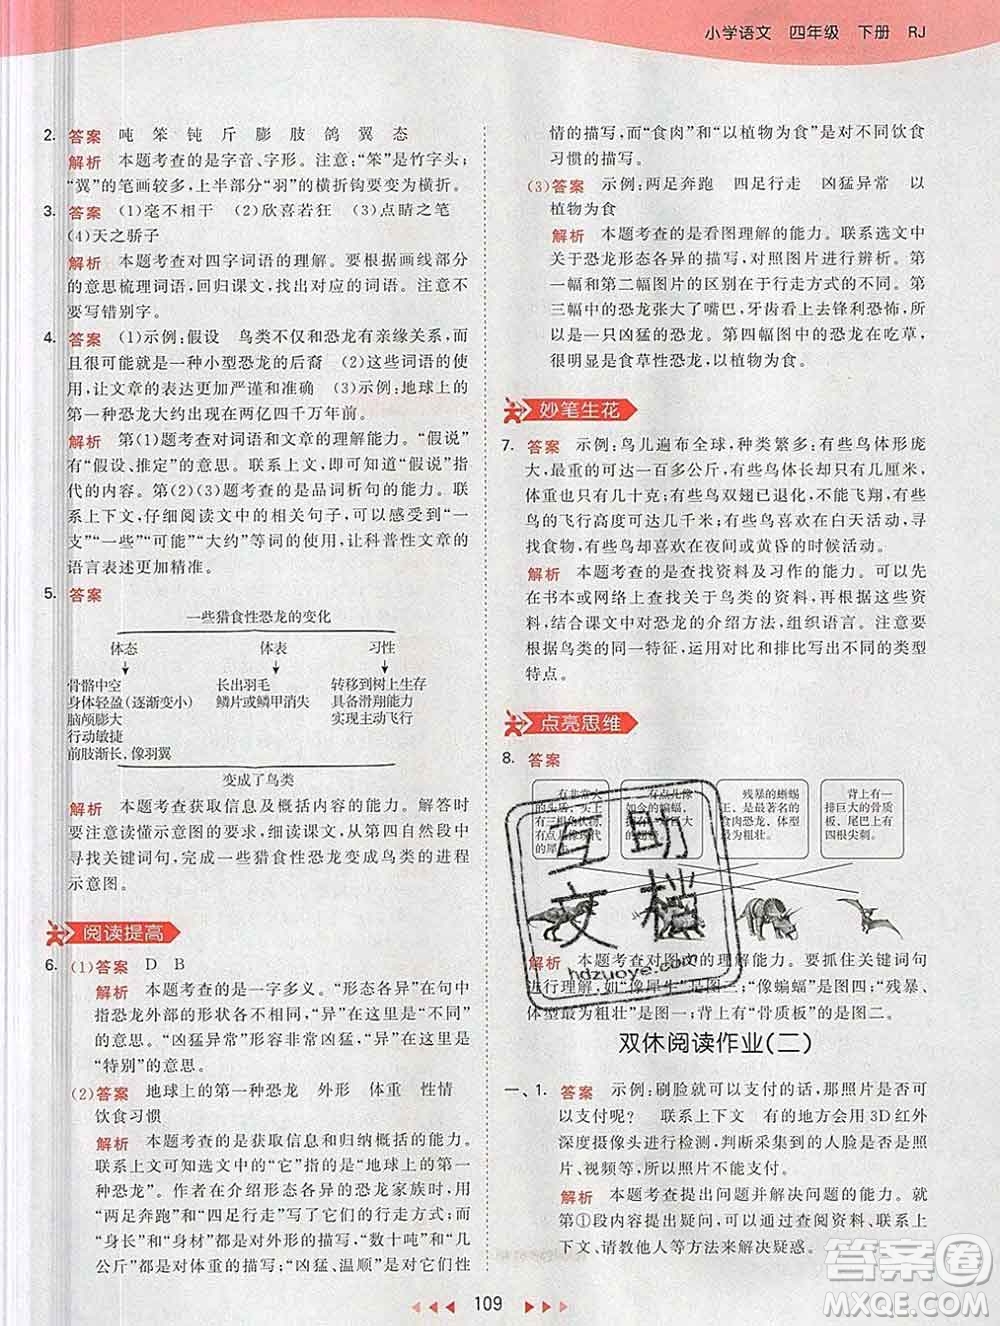 小学语文 四年级 下册 RJ
2. 答案 吨 笨 钝 斤 膨 肢 鸽 翼 态
解析 本题考查的是字音、字形。注意:“笨”是竹字头;
“翼”的笔画较多,上半部分“羽”的横折钩要变为横折。
3. 答案 (1)毫不相干 (2)欣喜若狂 (3)点睛之笔
(4)天之骄子
解析 本题考查对四字词语的理解。要根据画线部分
的意思梳理词语,回归课文,找出对应的词语。注意不
要写错别字。
4. 答案 (1)示例:假设 鸟类不仅和恐龙有亲缘关系,而
且很可能就是一种小型恐龙的后裔 (2)这些词语的使
用,让文章的表达更加严谨和准确 (3)示例:地球上的
第一种恐龙大约出现在两亿四千万年前。
解析 第(1)题考查对词语和文章的理解能力。“假说”
有“假设、推定”的意思。联系上文,即可知道“假说”指
代的内容。第(2)(3)题考查的是品词析句的能力。联
系上下文,仔细阅读文中的相关句子,可以感受到“一
支”“一些”“可能”“大约”等词的使用,让科普性文章的
语言表述更加精准。
5. 答案
一些猎食性恐龙的变化
体态 体表 习性
骨骼中空 长出羽毛 转移到树上生存
身体轻盈(逐渐变小) 鳞片或鳞甲消失 具备滑翔能力
脑颅膨大 实现主动飞行
行动敏捷
前肢渐长,像羽翼
变成了鸟类
解析 本题考查获取信息及概括内容的能力。解答时
要注意读懂示意图的要求,细读课文,从第四自然段中
寻找关键词句,完成一些猎食性恐龙变成鸟类的进程
示意图。
阅读提高
6. (1)答案 D B
解析 本题考查的是一字多义。“形态各异”在句中
指恐龙外部的形状各不相同,“异”在这里有“不同”
的意思。“凶猛异常”形容非常凶猛,“异”在这里有
“特别”的意思。
(2)答案 地球上的第一种恐龙 外形 体重 性情
饮食习惯
解析 本题考查的是获取信息和归纳概括的能力。
联系上文可知选文中的“它”指的是“地球上的第一
种恐龙”。作者在介绍形态各异的恐龙家族时,以
“两足奔跑”和“四足行走”写了它们的行走方式;以
“身长”和“身材”是对外形的描写,“数十吨”和“几
公斤”写出了它们的体重;“凶猛、温顺”是关于性
情的描写,而“食肉”和“以植物为食”是对不同饮食
习惯的描写。
(3)答案 示例:两足奔跑 四足行走 凶猛异常 以
植物为食
解析 本题考查的是看图理解的能力。联系选文中
关于恐龙形态各异的描写,对照图片进行辨析。第
一幅和第二幅图片的区别在于行走方式的不同。第
三幅中的恐龙张大了嘴巴,牙齿看上去锋利恐怖,应
是一只凶猛的恐龙。第四幅图中的恐龙在吃草,
很明显是食草性恐龙,以植物为食。
妙笔生花
7. 答案 示例:鸟儿遍布全球,种类繁多:有些鸟体形庞
大,最重的可达一百多公斤,有些鸟体长只有几厘米,
体重也只有几十克;有些鸟双翅已退化,不能飞翔,有些
鸟的飞行高度可达几千米;有些鸟喜欢在白天活动,寻
找食物,有些鸟却喜欢在夜间或黄昏的时候活动。
解析 本题考查的是查找资料及习作的能力。可以先
在书本或网络上查找关于鸟类的资料,再对资料进行筛
选,结合课文中对恐龙的介绍方法,组织语言。注意要
根据鸟类的同一特征,运用对比和排比写出不同的类型
特点。
点亮思维
8. 答案
残暴的蜥蜴
王、最大的
食肉恐龙,体型
最为粗壮。
背上有一
排巨大的骨质
板、尾巴上有
四根尖刺。
互助文档
hdzuoye.com
解析 本题考查对图文的理解能力。要抓住关键词句
进行理解,如“像犀牛”是图三;“像蝙蝠”是图四;“残暴、
体型最为粗壮”是图一;背上有“骨质板”的是图二。
双休阅读作业(二)
一、1. 答案 示例:刷脸就可以支付的话,那照片是否可
以支付呢? 联系上下文 有的地方会用3D红外
深度摄像头进行检测,判断采集到的人脸是否是照
片、视频等,所以照片不能支付。
解析 本题考查提出问题并解决问题的能力。就
第①段内容提出疑问,可以通过查阅资料、联系上
下文、请教他人等方法解决疑惑。
109
答案圈
MXQE.COM